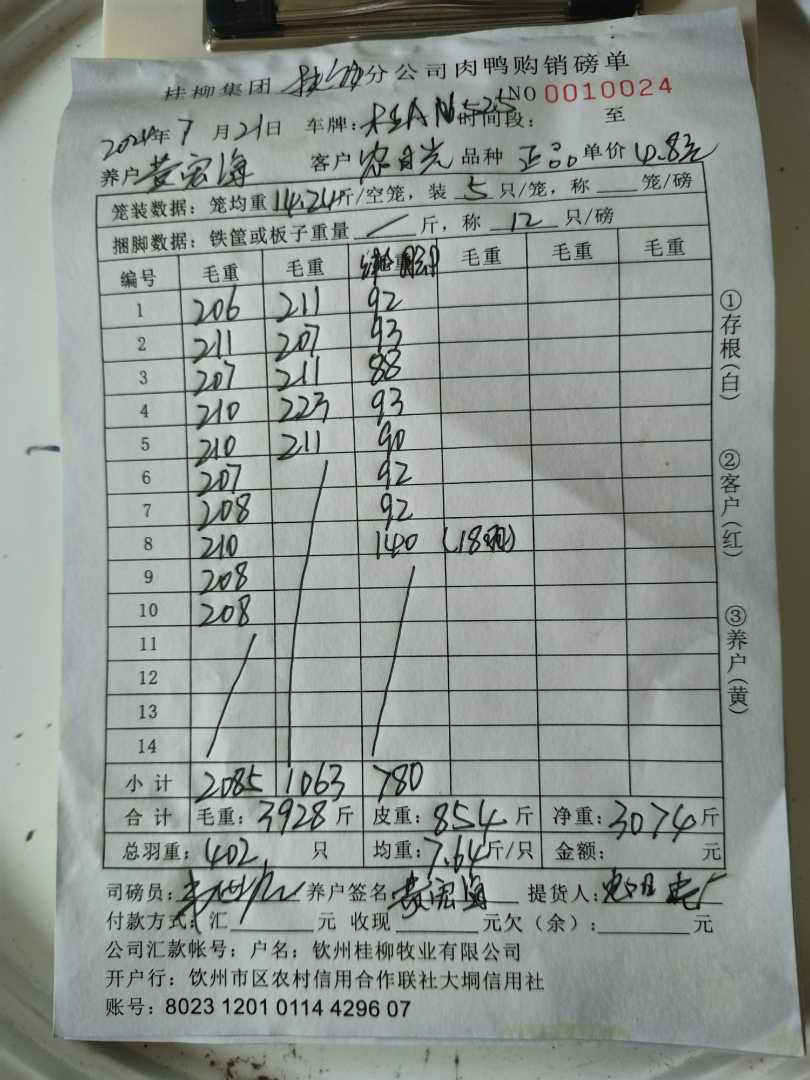 桂柳集团 分公司肉鸭购销磅单
NO 0010024
2024年7月21日 车牌: 桂A 时间段: 至
养户 黄宏海 客户 农日光 品种 正品 单价 4.8元
笼装数据: 笼均重 14.24 斤/空笼, 装 5 只/笼, 称 笼/磅
捆脚数据: 铁筐或板子重量 / 斤, 称 12 只/磅
编号 毛重 毛重 毛重 毛重 毛重
1 206 211 92
2 211 207 93
3 207 211 88
4 210 223 93
5 210 211 90
6 207 92
7 208 92
8 210 140 (18只)
9 208
10 208
11
12
13
14
小计 2085 1063 780
合计 毛重: 3928 斤 皮重: 854 斤 净重: 3074 斤
总羽重: 402 只 均重: 7.64 斤/只 金额: 元
司磅员: 养户签名: 黄宏海 提货人:
付款方式: 汇 元 收现 元欠(余): 元
公司汇款帐号: 户名: 钦州桂柳牧业有限公司
开户行: 饮州市区农村信用合作联社大垌信用社
账号: 8023 1201 0114 4296 07
①存根(白)
②客户(红)
③养户(黄)